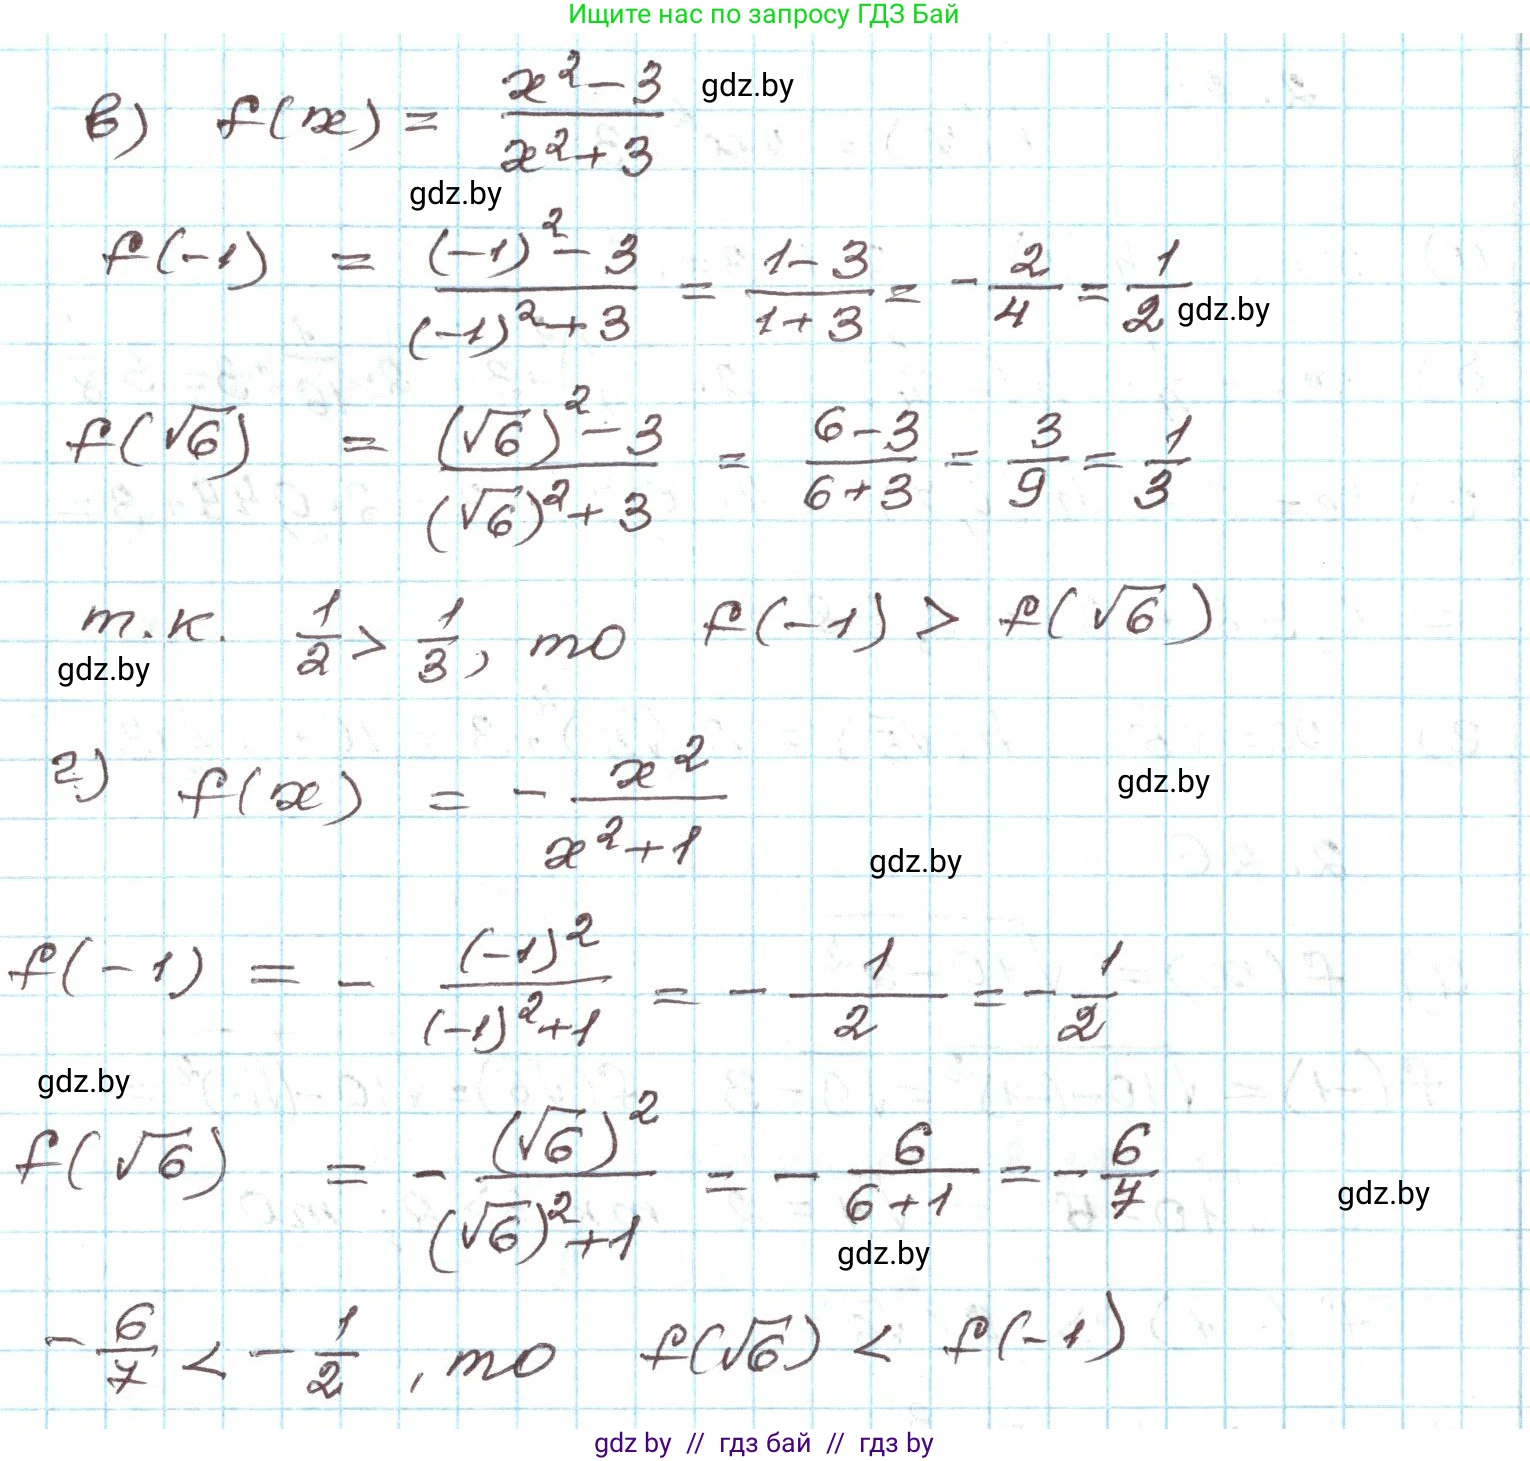 Ищите нас по запросу ГДЗ Бай
в) f(x) = (x² - 3)/(x² + 3) gdz.by
gdz.by
f(-1) = ((-1)² - 3)/((-1)² + 3) = (1 - 3)/(1 + 3) = - 2/4 = 1/2 gdz.by
f(√6) = ((√6)² - 3)/((√6)² + 3) = (6 - 3)/(6 + 3) = 3/9 = 1/3
т.к. 1/2 > 1/3, то f(-1) > f(√6)
gdz.by
г) f(x) = - x²/(x² + 1) gdz.by
gdz.by
f(-1) = - (-1)²/((-1)² + 1) = - 1/2 = - 1/2
gdz.by
f(√6) = - (√6)²/((√6)² + 1) = - 6/(6 + 1) = - 6/7 gdz.by
gdz.by
- 6/7 < - 1/2, то f(√6) < f(-1)
gdz by // гдз бай // гдз by